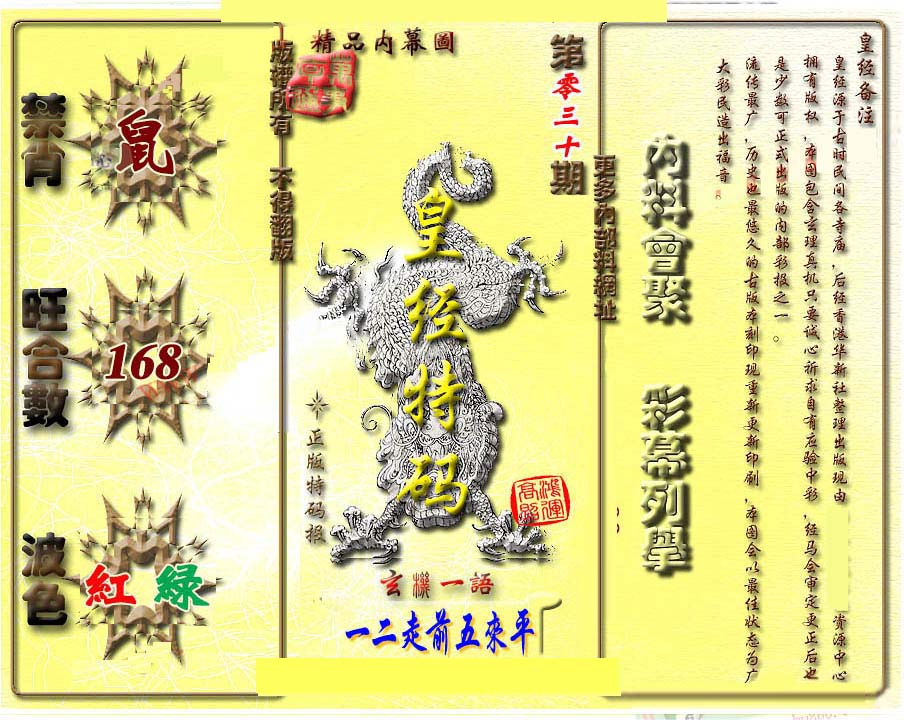 精品内幕圖
第零三十期
版權所有 不得翻版
更多內部料網址
皇经特码
正版特码报
鴻運高照
玄機一語
一二走前五來平
禁肖
鼠
旺合數
168
波色
紅 緑
內料會聚
彩幕列學
皇经备注
皇经源于古时民间各寺庙,后经香港华新社整理出版现由 资源中心
拥有版权,本图包含玄理真机只要诚心祈求自有应验中彩,经马会审定更正后也
是少数可正式出版的内部彩报之一。
流传最广,历史也最悠久的古版本刻印现重新更新印刷,本图会以最佳状态为广
大彩民造出福音